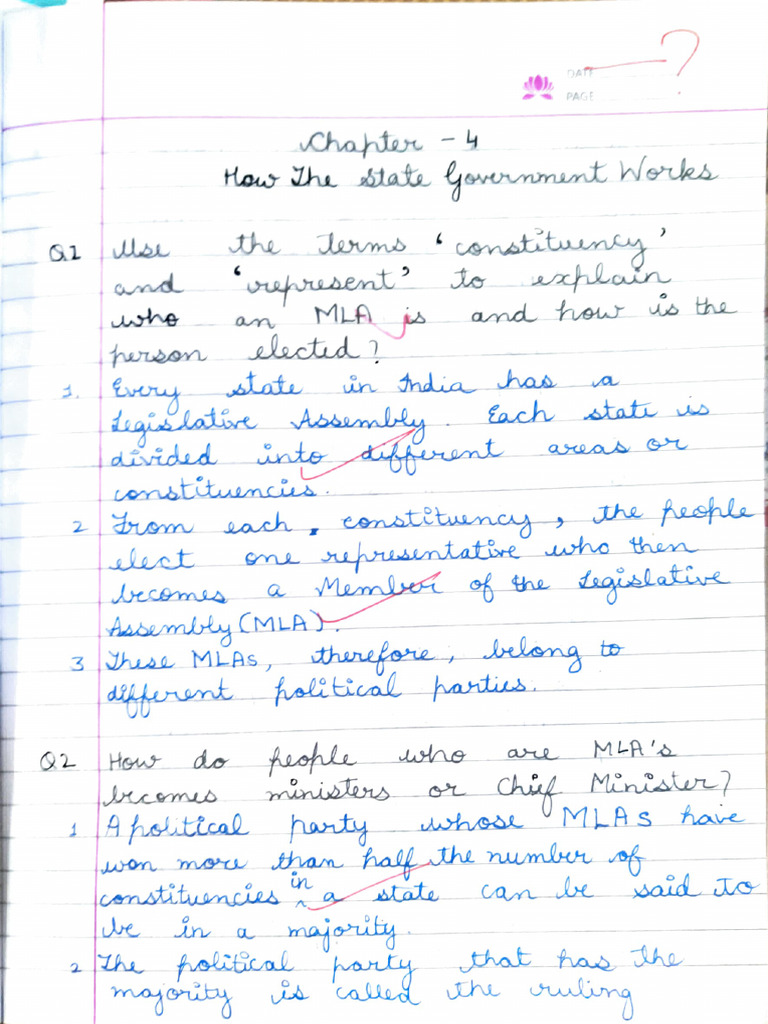 ?
DATE
PAGE
Chapter - 4
How The State Government Works
Q1 Use the terms 'constituency'
and 'represent' to explain
who an MLA is and how is the
person elected?
1. Every state in India has a
Legislative Assembly. Each state is
divided into different areas or
constituencies.
2 From each, constituency, the people
elect one representative who then
becomes a Member of the Legislative
Assembly (MLA).
3 These MLAs, therefore, belong to
different political parties.
Q2 How do people who are MLA's
becomes ministers or Chief Minister?
1 A political party whose MLAs have
won more than half the number of
constituencies in a state can be said to
be in a majority.
2 The political party that has the
majority is called the ruling